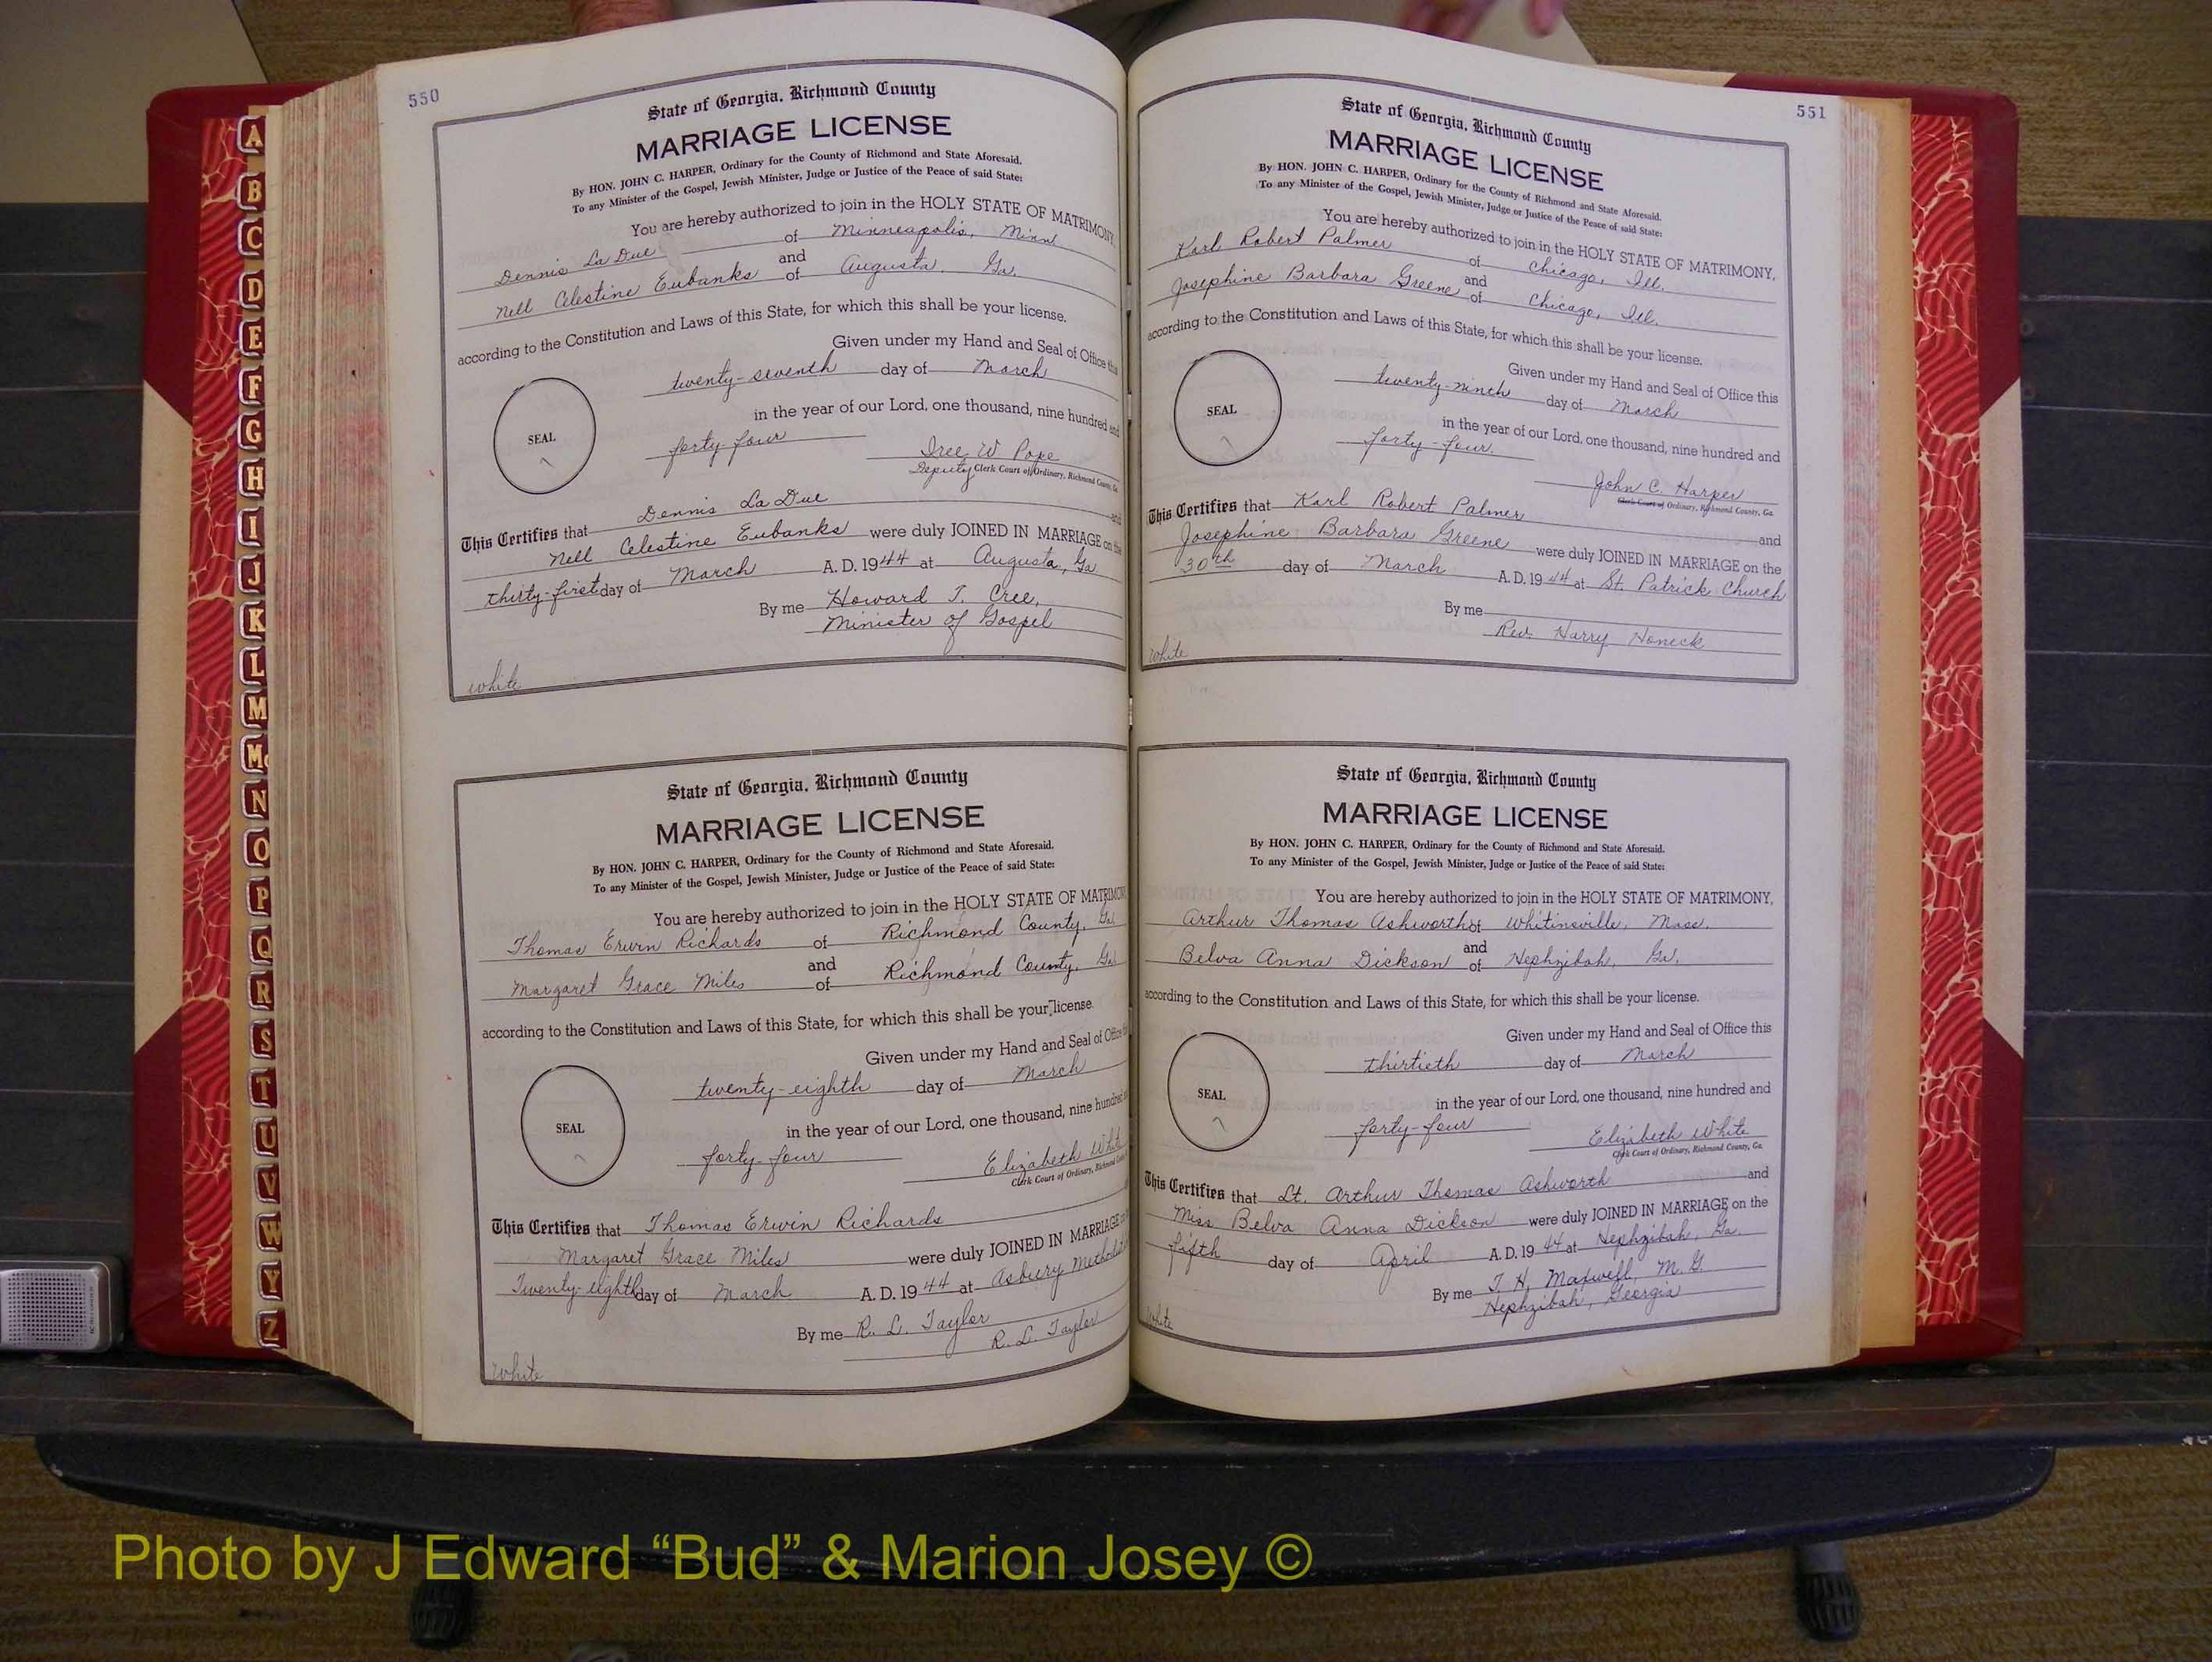 550
State of Georgia, Richmond County
MARRIAGE LICENSE
By HON. JOHN C. HARPER, Ordinary for the County of Richmond and State Aforesaid.
To any Minister of the Gospel, Jewish Minister, Judge or Justice of the Peace of said State:
You are hereby authorized to join in the HOLY STATE OF MATRIMONY,
Dennis La Due of Minneapolis, Minn
and
Nell Celestine Eubanks of Augusta, Ga.
according to the Constitution and Laws of this State, for which this shall be your license.
Given under my Hand and Seal of Office this
twenty-seventh day of March
in the year of our Lord, one thousand, nine hundred and
SEAL
forty-four Iree W Pope
Deputy Clerk Court of Ordinary, Richmond County, Ga.
This Certifies that Dennis La Due and
Nell Celestine Eubanks were duly JOINED IN MARRIAGE on the
thirty-first day of March A. D. 1944 at Augusta, Ga
By me Howard T. Cree,
Minister of Gospel
White
State of Georgia, Richmond County
MARRIAGE LICENSE
By HON. JOHN C. HARPER, Ordinary for the County of Richmond and State Aforesaid.
To any Minister of the Gospel, Jewish Minister, Judge or Justice of the Peace of said State:
You are hereby authorized to join in the HOLY STATE OF MATRIMONY
Thomas Erwin Richards of Richmond County, Ga.
and
Margaret Grace Miles of Richmond County, Ga
according to the Constitution and Laws of this State, for which this shall be your license.
Given under my Hand and Seal of Office
twenty-eighth day of March
in the year of our Lord, one thousand, nine hundred
SEAL
forty-four Elizabeth White
Clerk Court of Ordinary, Richmond
This Certifies that Thomas Erwin Richards
Margaret Grace Miles were duly JOINED IN MARRIAGE
Twenty-eighth day of March A. D. 1944 at Asbury Methodist
By me R. L. Taylor
R. L. Taylor
White
551
State of Georgia, Richmond County
MARRIAGE LICENSE
By HON. JOHN C. HARPER, Ordinary for the County of Richmond and State Aforesaid.
To any Minister of the Gospel, Jewish Minister, Judge or Justice of the Peace of said State:
You are hereby authorized to join in the HOLY STATE OF MATRIMONY,
Karl Robert Palmer of Chicago, Ill.
and
Josephine Barbara Greene of Chicago, Ill.
according to the Constitution and Laws of this State, for which this shall be your license.
Given under my Hand and Seal of Office this
twenty-ninth day of March
in the year of our Lord, one thousand, nine hundred and
SEAL
forty-four. John C. Harper
Clerk Court of Ordinary, Richmond County, Ga.
This Certifies that Karl Robert Palmer
and
Josephine Barbara Greene were duly JOINED IN MARRIAGE on the
30th day of March A. D. 1944 at St. Patrick Church
By me
Rev. Harry Honeck
White
State of Georgia, Richmond County
MARRIAGE LICENSE
By HON. JOHN C. HARPER, Ordinary for the County of Richmond and State Aforesaid.
To any Minister of the Gospel, Jewish Minister, Judge or Justice of the Peace of said State:
You are hereby authorized to join in the HOLY STATE OF MATRIMONY,
Arthur Thomas Ashworth of Whitinsville, Mass.
and
Belva Anna Dickson of Hephzibah, Ga.
according to the Constitution and Laws of this State, for which this shall be your license.
Given under my Hand and Seal of Office this
thirtieth day of March
in the year of our Lord, one thousand, nine hundred and
SEAL
forty-four Elizabeth White
Clerk Court of Ordinary, Richmond County, Ga.
This Certifies that Lt. Arthur Thomas Ashworth and
Miss Belva Anna Dickson were duly JOINED IN MARRIAGE on the
fifth day of April A. D. 1944 at Hephzibah, Ga.
By me T. H. Maxwell, M. G
Hephzibah, Georgia
White
A
B
C
D
E
F
G
H
I
J
K
L
M
Mc
N
O
P
Q
R
S
T
U
V
W
Y
Z
Photo by J Edward “Bud” & Marion Josey ©